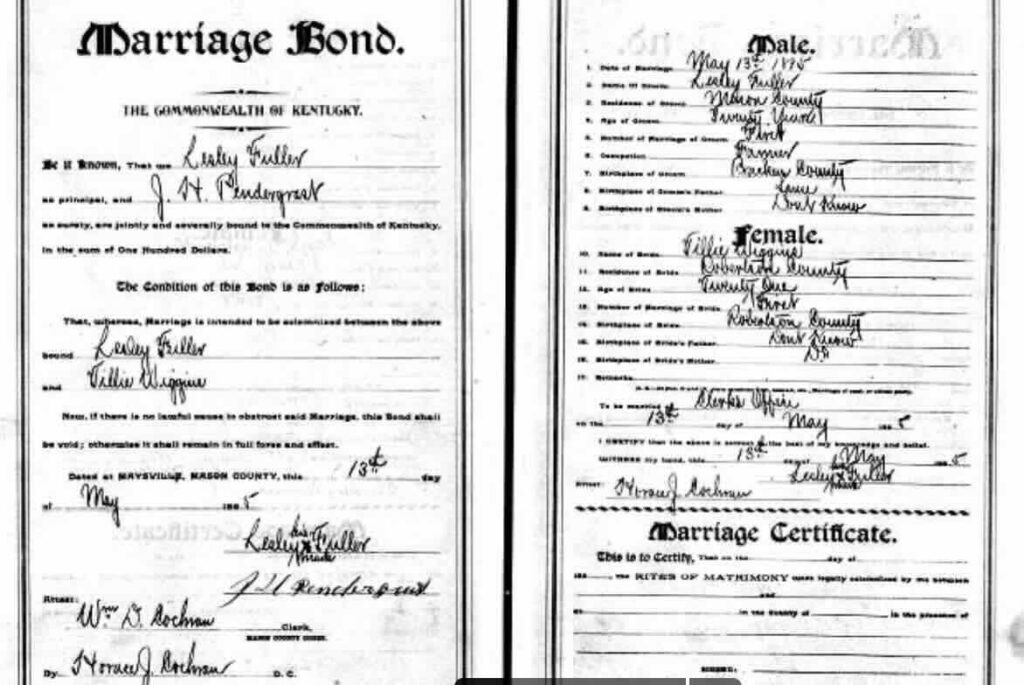 Marriage Bond.
THE COMMONWEALTH OF KENTUCKY.
Be it Known, That we Lesley Fuller
as principal, and J. H. Pendergrast
as surety, are jointly and severally bound to the Commonwealth of Kentucky,
in the sum of One Hundred Dollars.
The Condition of this Bond is as Follows:
That, whereas, Marriage is intended to be solemnized between the above
bound Lesley Fuller
and Tillie Wiggins
Now, if there is no lawful cause to obstruct said Marriage, this Bond shall
be void; otherwise it shall remain in full force and effect.
Dated at MAYSVILLE, MASON COUNTY, this 13th day
of May 1895
his
Lesley x Fuller
mark
J H Pendergrast
Attest:
Wm D. Cochran
Clerk,
MASON COUNTY COURT.
By Horace J. Cochran D. C.
Male.
1. Date of Marriage May 13th 1895
2. Name of Groom Lesley Fuller
3. Residence of Groom Mason County
4. Age of Groom Twenty Years
5. Number of Marriage of Groom First
6. Occupation Farmer
7. Birthplace of Groom Bracken County
8. Birthplace of Groom's Father Same
9. Birthplace of Groom's Mother Dont Know
Female.
10. Name of Bride Tillie Wiggins
11. Residence of Bride Robertson County
12. Age of Bride Twenty One
13. Number of Marriage of Bride First
14. Birthplace of Bride Robertson County
15. Birthplace of Bride's Father Dont Know
16. Birthplace of Bride's Mother Do
17. Remarks
To be married at Clerks Office
on the 13th day of May 1895
I CERTIFY that the above is correct to the best of my knowledge and belief.
WITNESS my hand, this 13th day of May 1895
his
Lesley x Fuller
mark
Attest: Horace J. Cochran
Marriage Certificate.
This is to Certify, That on the day of
189 , the RITES OF MATRIMONY were legally solemnized by me between
and
at in the County of , in the presence of
SIGNED: